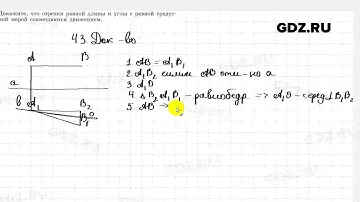 Докажите, что отрезки равной длины и углы с равной градус-
ной мерой совмещаются движением.
GDZ.RU
43 Док-во
A B
a
b A₁ B₂
D
B₁
1. AB = A₁B₁
2. A₁B₂ симм. AB отн-но a
3. A₁D
4. △B₂A₁B₁ - равнобедр. => A₁D - серед. ⊥ B₂B₁
5. AB →